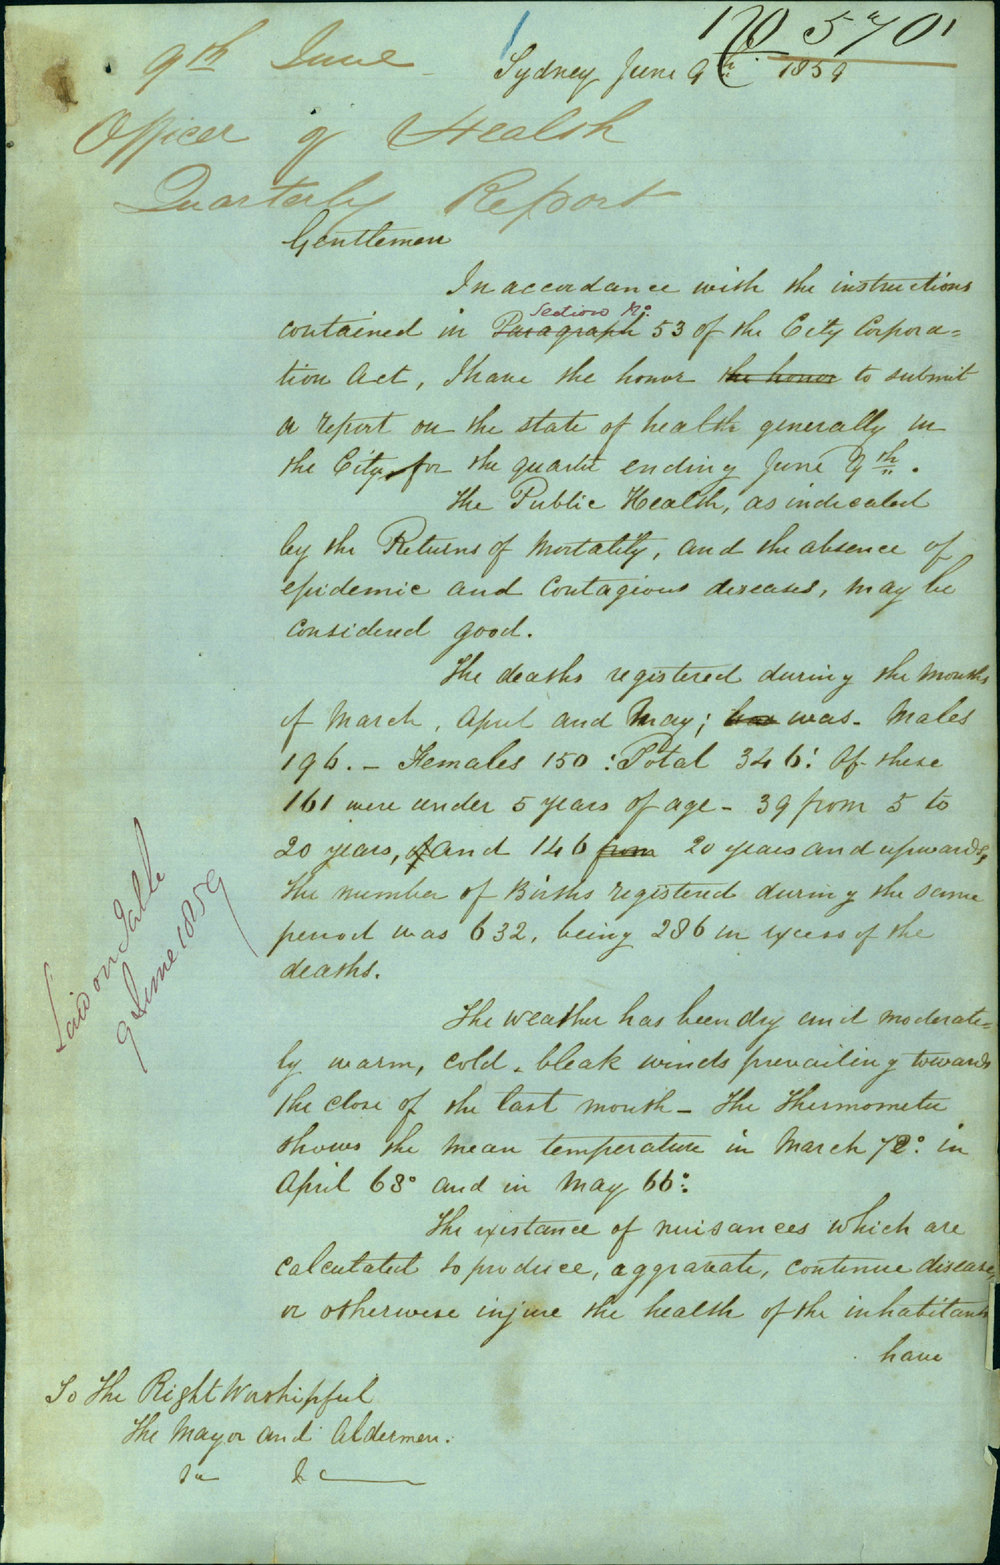 No 570
9th June
Sydney June 9th 1859
Officer of Health
Quarterly Report
Gentlemen
In accordance with the instructions
Section No.
contained in Paragraph 53 of the City Corpora=
tion Act, I have the honor the honor to submit
a report on the state of health generally in
the City, for the quarter ending June 9th.
The Public Health, as indicated
by the Returns of Mortality, and the absence of
epidemic and Contagious diseases, may be
Considered good.
The deaths registered during the months
of March, April and May; was - Males
196. - Females 150: Total 346: Of these
161 were under 5 years of age - 39 from 5 to
20 years, and 146 from 20 years and upwards,
the number of Births registered during the same
period was 632, being 286 in excess of the
deaths.
Laid on Table
9 June 1859
The weather has been dry and moderate=
ly warm, cold, bleak winds prevailing towards
the close of the last month - The Thermometer
shows the mean temperature in March 72° in
April 68° and in May 66°:
The existance of nuisances which are
Calculated to produce, aggravate, continue disease,
or otherwise injure the health of the inhabitants
have
To The Right Worshipful
The Mayor and Aldermen.